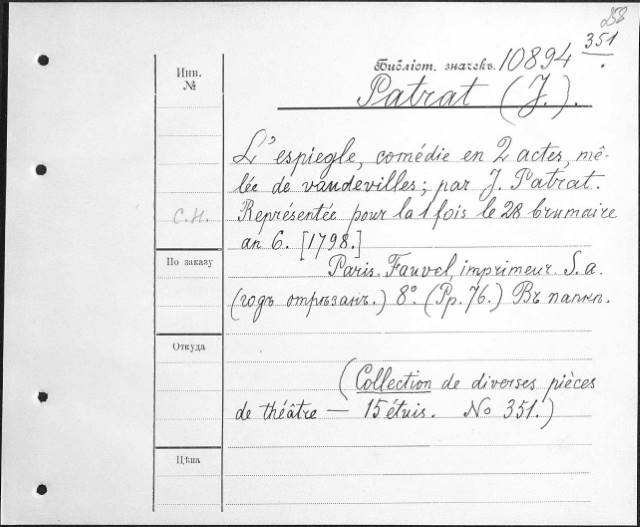 258
Библіот. значекъ. 10894 351
Инв.
№
Patrat (J.).
L'espiegle, comédie en 2 actes, mê-
lée de vaudevilles; par J. Patrat.
С.Н. Représentée pour la 1 fois le 28 brumaire
an 6. [1798.]
По заказу
Paris. Fauvel, imprimeur. S. a.
(годъ отрѣзанъ.) 8°. (Pp. 76.) Въ папкѣ.
Откуда
(Collection de diverses pièces
de théâtre — 15 étuis. No 351.)
Цѣна